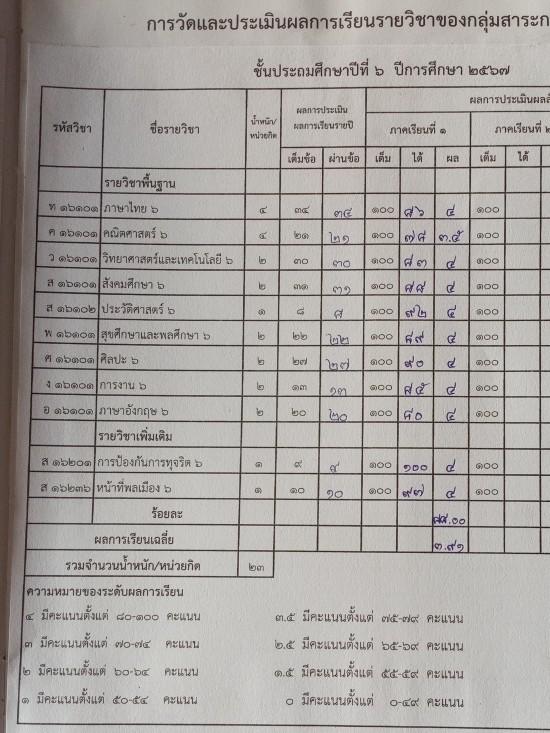 การวัดและประเมินผลการเรียนรายวิชาของกลุ่มสาระก
ชั้นประถมศึกษาปีที่ ๖ ปีการศึกษา ๒๕๖๗
รหัสวิชา ชื่อรายวิชา น้ำหนัก/หน่วยกิต ผลการประเมินผลการเรียนรายปี ผลการประเมินผลสั
ภาคเรียนที่ ๑ ภาคเรียนที่ ๒
เต็มข้อ ผ่านข้อ เต็ม ได้ ผล เต็ม ได้
รายวิชาพื้นฐาน
ท ๑๖๑๐๑ ภาษาไทย ๖ ๔ ๓๔ ๓๔ ๑๐๐ ๘๖ ๔ ๑๐๐
ค ๑๖๑๐๑ คณิตศาสตร์ ๖ ๔ ๒๑ ๒๑ ๑๐๐ ๗๘ ๓.๕ ๑๐๐
ว ๑๖๑๐๑ วิทยาศาสตร์และเทคโนโลยี ๖ ๒ ๓๐ ๓๐ ๑๐๐ ๘๓ ๔ ๑๐๐
ส ๑๖๑๐๑ สังคมศึกษา ๖ ๒ ๓๑ ๓๑ ๑๐๐ ๘๘ ๔ ๑๐๐
ส ๑๖๑๐๒ ประวัติศาสตร์ ๖ ๑ ๘ ๘ ๑๐๐ ๙๒ ๔ ๑๐๐
พ ๑๖๑๐๑ สุขศึกษาและพลศึกษา ๖ ๒ ๒๒ ๒๒ ๑๐๐ ๘๙ ๔ ๑๐๐
ศ ๑๖๑๐๑ ศิลปะ ๖ ๒ ๒๗ ๒๗ ๑๐๐ ๙๐ ๔ ๑๐๐
ง ๑๖๑๐๑ การงาน ๖ ๒ ๑๓ ๑๓ ๑๐๐ ๘๕ ๔ ๑๐๐
อ ๑๖๑๐๑ ภาษาอังกฤษ ๖ ๒ ๒๐ ๒๐ ๑๐๐ ๘๐ ๔ ๑๐๐
รายวิชาเพิ่มเติม
ส ๑๖๒๐๑ การป้องกันการทุจริต ๖ ๑ ๙ ๙ ๑๐๐ ๑๐๐ ๔ ๑๐๐
ส ๑๖๒๓๖ หน้าที่พลเมือง ๖ ๑ ๑๐ ๑๐ ๑๐๐ ๙๗ ๔ ๑๐๐
ร้อยละ ๘๘.๐๐
ผลการเรียนเฉลี่ย ๓.๙๑
รวมจำนวนน้ำหนัก/หน่วยกิต ๒๓
ความหมายของระดับผลการเรียน
๔ มีคะแนนตั้งแต่ ๘๐-๑๐๐ คะแนน ๓.๕ มีคะแนนตั้งแต่ ๗๕-๗๙ คะแนน
๓ มีคะแนนตั้งแต่ ๗๐-๗๔ คะแนน ๒.๕ มีคะแนนตั้งแต่ ๖๕-๖๙ คะแนน
๒ มีคะแนนตั้งแต่ ๖๐-๖๔ คะแนน ๑.๕ มีคะแนนตั้งแต่ ๕๕-๕๙ คะแนน
๑ มีคะแนนตั้งแต่ ๕๐-๕๔ คะแนน ๐ มีคะแนนตั้งแต่ ๐-๔๙ คะแนน